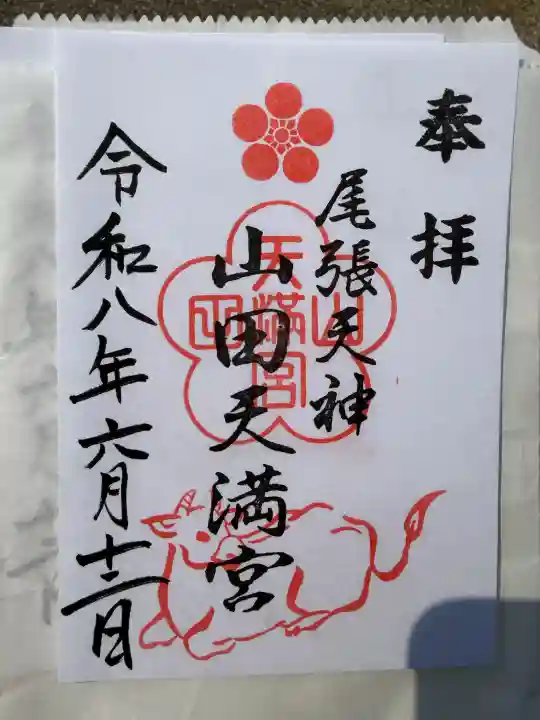 奉拝
尾張天神
山田天満宮
山田天満宮
令和八年六月十二日